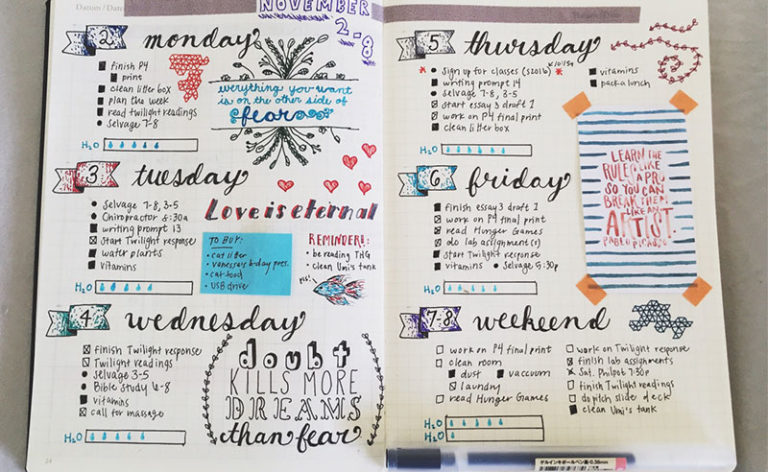 Datum / Date
NOVEMBER
2-8
2 monday
finish P4
print
clean litter box
plan the week
read twilight readings
selvage 7-8
H2O
everything you want
is on the other side of
fear
3 tuesday
Selvage 7-8, 3-5
Chiropractor 8:30a
writing prompt 13
Start Twilight response
water plants
vitamins
H2O
Love is eternal
TO BUY:
cat litter
vanessa's b-day pres.
cat food
USB drive
REMINDER!:
be reading THG
clean Umi's tank
4 wednesday
finish Twilight response
Twilight readings
Selvage 3-5
Bible Study 6-8
vitamins
call for massage
H2O
doubt
KILLS MORE
DREAMS
than fear
5 thursday
sign up for classes (S2016)
writing prompt 14
selvage 7-8, 3-5
start essay 3 draft 1
work on P4 final print
clean litter box
vitamins
pack a lunch
H2O
LEARN THE
RULES LIKE
A PRO
SO YOU CAN
BREAK THEM
LIKE AN
ARTIST.
PABLO PICASSO
6 friday
finish essay 3 draft 1
work on P4 final print
read Hunger Games
do lab assignment(s)
start Twilight response
vitamins
selvage 5:30p
H2O
7-8 weekend
work on P4 final print
clean room
dust
vaccum
laundry
read Hunger Games
work on Twilight response
finish lab assignments
Sat. Philpot 7:30p
finish Twilight readings
clean Umi's tank
H2O
H2O